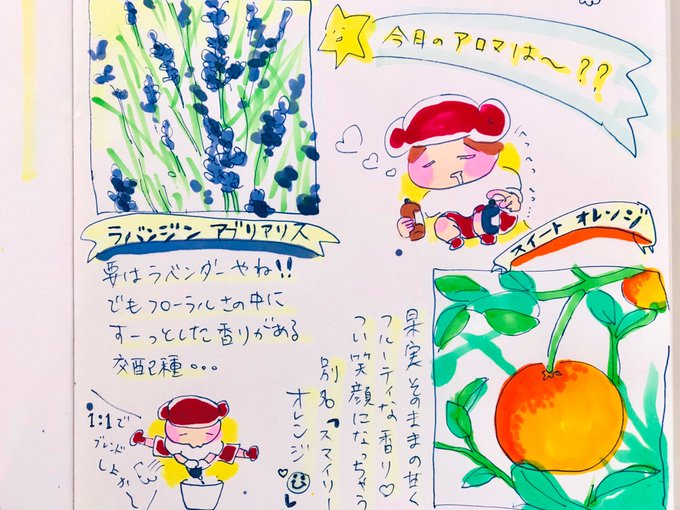 今月のアロマは〜??
ラバンジン アブリアリス
要はラベンダーやね!!
でもフローラルさの中に
すーっとした香りがある
交配種...
1:1で
ブレンド
しよか〜
スイート オレンジ
果実そのままの甘く
フルーティな香り♡
つい笑顔になっちゃう
別名「スマイリー
オレンジ」